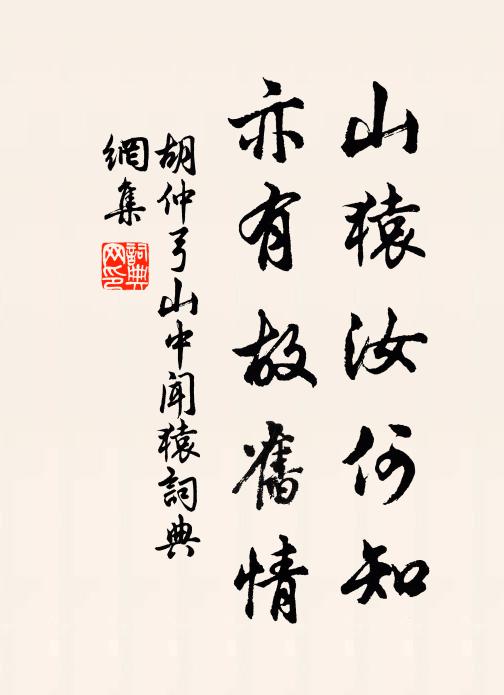 山猿汝何知
亦有故舊情
胡仲弓山中聞猿詞典
網集
詞典
网印